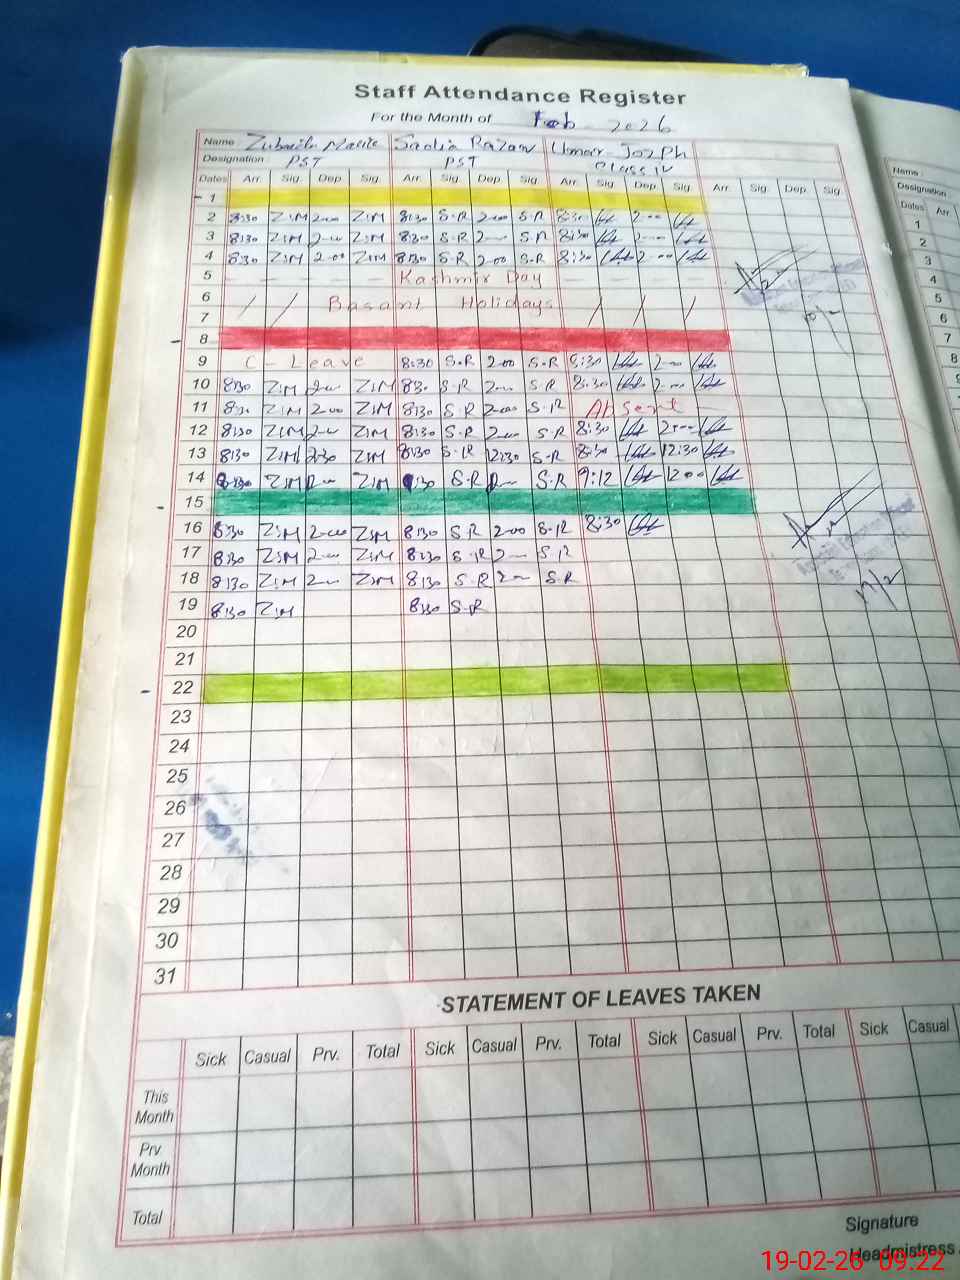 Staff Attendance Register
For the Month of Feb - 2026
Name Saolia Umar Jozeph
Designation: PST PST Class IV
Dates Arr. Sig. Dep. Sig. Arr. Sig. Dep. Sig. Arr. Sig. Dep. Sig. Arr. Sig. Dep. Sig.
1
2 8:30 ZIM 2:00 ZIM 8:30 S.R 2:00 S.R 8:30 2:00
3 8:30 ZIM 2:00 ZIM 8:30 S.R 2:00 S.R 8:30 2:00
4 8:30 ZIM 2:00 ZIM 8:30 S.R 2:00 S.R 8:30 2:00
5 Kashmir Day
6 Basant Holidays
7
8
9 C-Leave 8:30 S.R 2:00 S.R 8:30 2:00
10 8:30 ZIM 2:00 ZIM 8:30 S.R 2:00 S.R 8:30 2:00
11 8:30 ZIM 2:00 ZIM 8:30 S.R 2:00 S.R Absent
12 8:30 ZIM 2:00 ZIM 8:30 S.R 2:00 S.R 8:30 2:00
13 8:30 ZIM ZIM 8:30 S.R 12:30 S.R 8:30 12:30
14 ZIM ZIM S.R S.R 9:12 12:00
15
16 8:30 ZIM 2:00 ZIM 8:30 S.R 2:00 S.R 8:30
17 8:30 ZIM 2:00 ZIM 8:30 S.R 2:00 S.R
18 8:30 ZIM 2:00 ZIM 8:30 S.R 2:00 S.R
19 8:30 ZIM 8:30 S.R
20
21
22
23
24
25
26
27
28
29
30
31
STATEMENT OF LEAVES TAKEN
Sick Casual Prv. Total Sick Casual Prv. Total Sick Casual Prv. Total Sick Casual
This Month
Prv Month
Total
Signature
Headmistress
19-02-26 09:22
Name :
Designation
Dates Arr
1
2
3
4
5
6
7
8
9
10
11